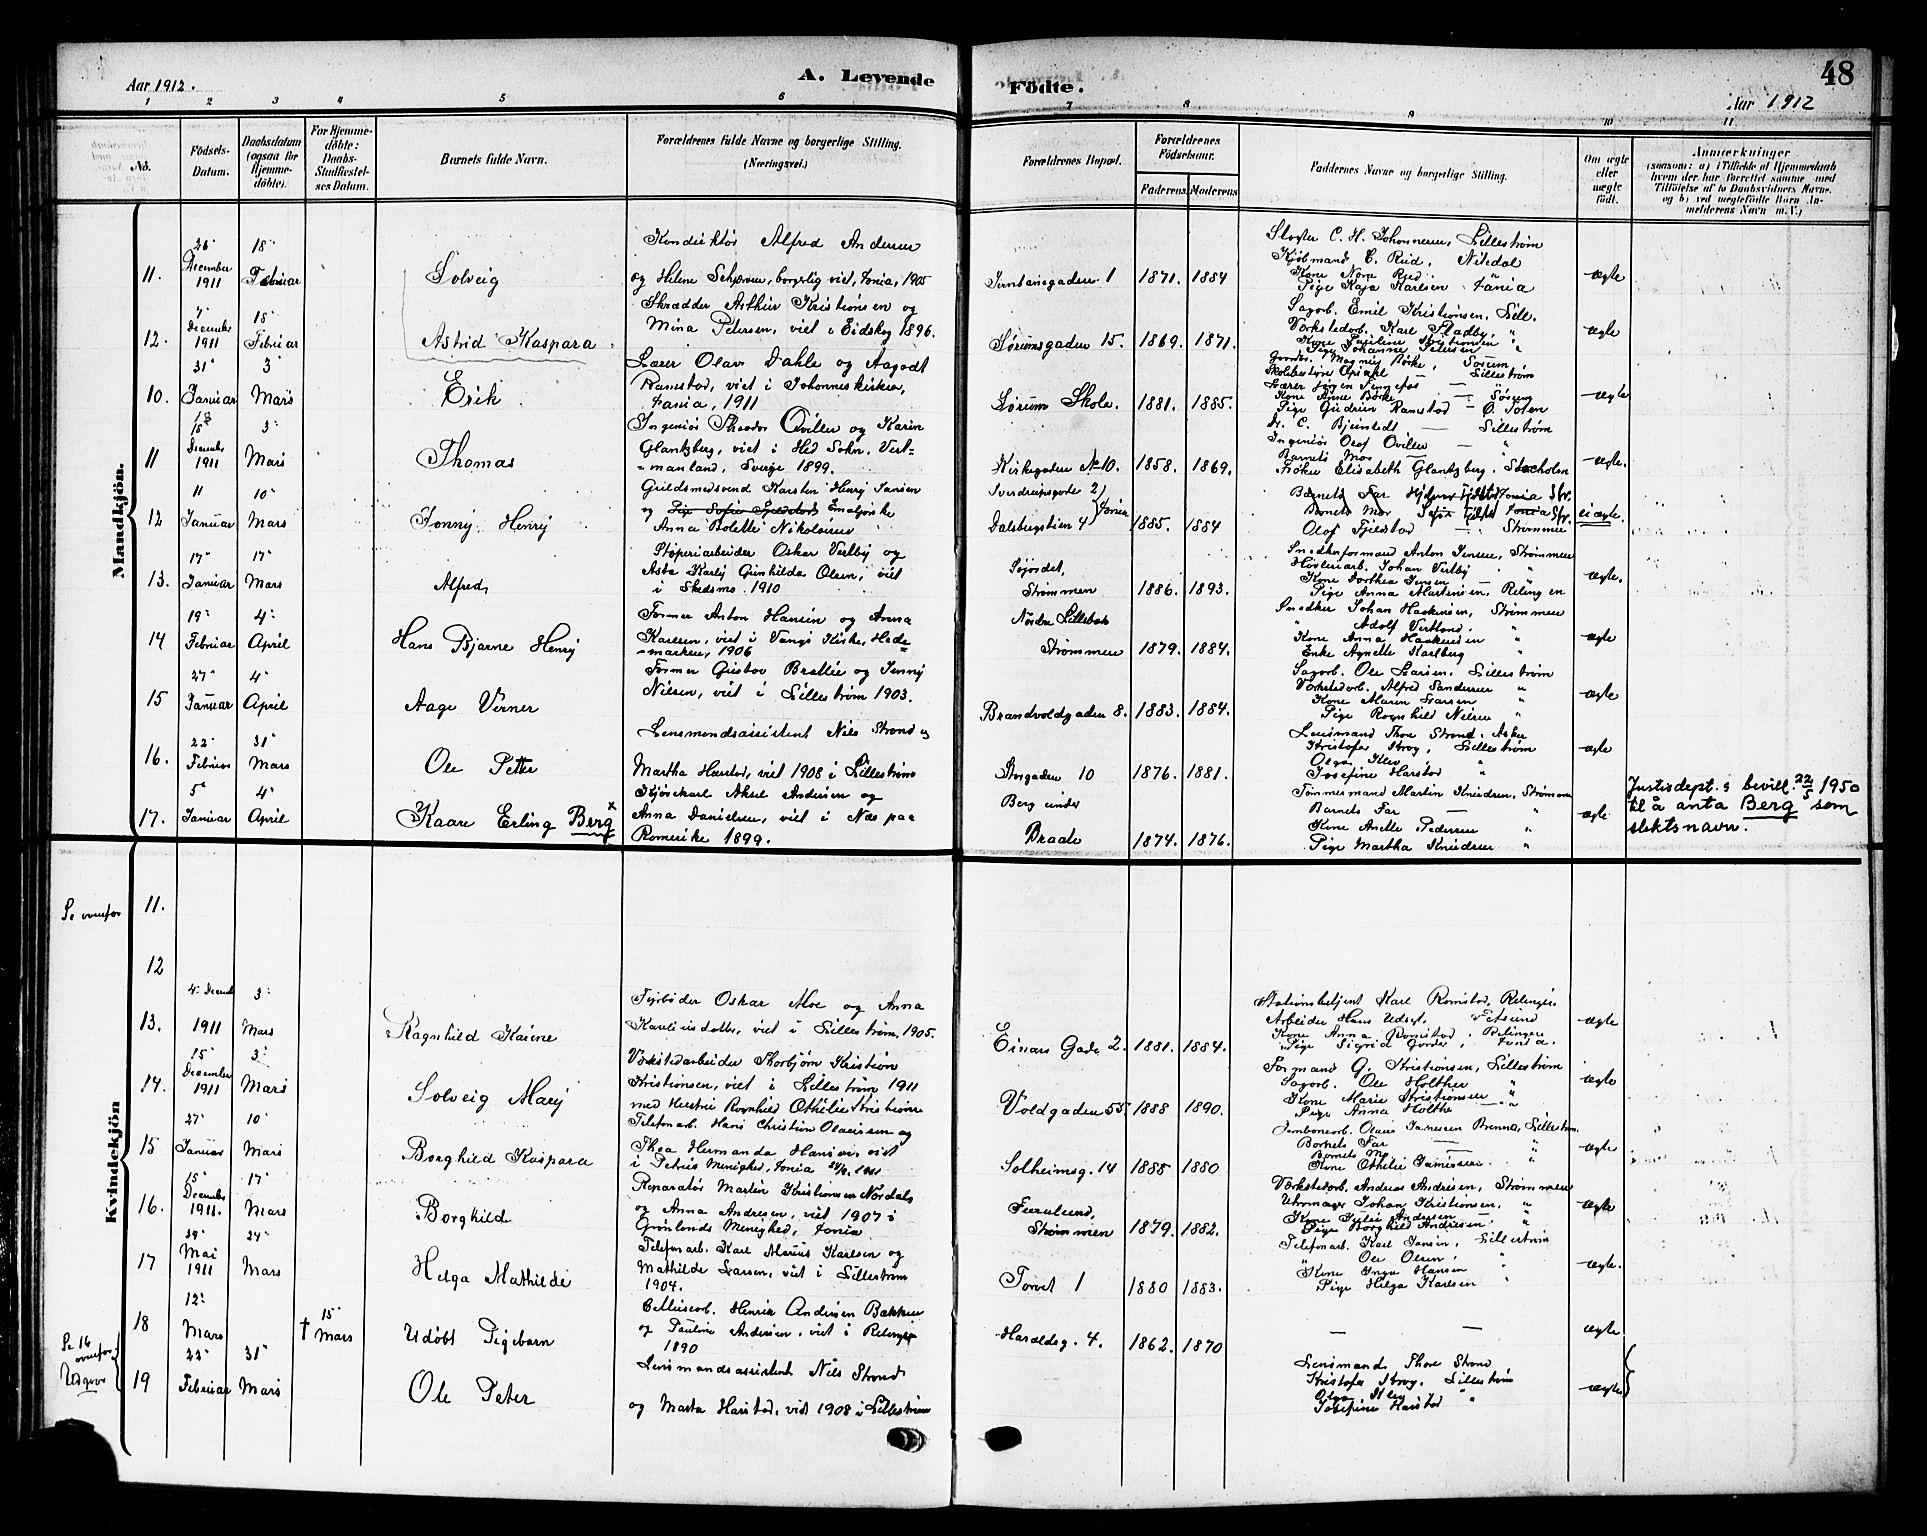 Aar 1912.
A. Levende
Födte.
48
Aar 1912
1 2 3 4 5 6 7 8 9 10 11
No.
Födsels-
Datum.
Daabsdatum
(ogsaa for
Hjemme-
döbte).
For Hjemme-
döbte:
Daabs-
Stadfæstel-
ses Datum.
Barnets fulde Navn.
Forældrenes fulde Navne og borgerlige Stilling.
(Næringsvei.)
Forældrenes Bopæl.
Forældrenes
Födselsaar.
Faderens. Moderens
Faddernes Navne og borgerlige Stilling.
Om ægte
eller
uægte
födt.
Anmærkninger
(saasom: a) i Tilfælde af Hjemmedaab
hvem der har forrettet samme med
Tilföielse af to Daabsvidners Navne.
og b) ved uægtefödte Börn An-
melderens Navn m. V.)
Mandkjön.
11. 26 December 1911
18 Februar
Solveig
Konduktør Alfred Andersen
og Helene , borgerlig viet, Xania, 1905
1
1871. 1884
C. H. Johannesen, Lillestrøm
Kjøbmand C. Rud, Nitedal
Kone Nora Rud. "
Pige Kaja Karlsen Xania
ægte
12. 7 December 1911
18 Februar
Astrid Kaspara
Skrædder Arthur Kristiansen og
Mina Petersen, viet i Eidskog 1896.
Sørumsgaden 15.
1869. 1871.
Sagarb. Emil Kristiansen, Lill.
Værkstedarb. Karl Stadby, "
Kone Pauline Kristiansen "
Pige Johanne Petersen "
ægte
10. 31 Januar
3 Mars
Erik
Lærer Olav Dahle og Aagodt
Ramstad, viet i Johanneskirken,
Xania, 1911
Sørum Skole.
1881. 1885.
Magnus Børke, Sørum
Skolebestyrer Lillestrøm
Lærer Jørgen — "
Kone Anne Børke — Sørum
Pige Gudrun Ramstad — Ø. Toten
ægte
11 15 December 1911
3 Mars
Thomas
Ingeniør Theodor Qviller og Karin
Glantzberg, viet i Hed Sokn, Vest-
-manland, Sverge 1899.
Kirkegaden No 10.
1858. 1869.
Dr. C. Bjerstedt — Lillestrøm
Ingeniør Olaf Qviller — "
Barnets Mor — "
Frøken Elisabeth Glantzberg. Stockholm
ægte.
12 11 Januar
10 Mars
Jonny Henry
Guldsmedsvend Karsten Henry Jansen
og Pige Sofie Fjeldstad Emaljørske
Anna Bolette Nikolaisen
Sverdrupsgade 2)
Dalsbergstien 4 } Xania
1885. 1884
Barnets Far
Barnets Mor
Olaf Fjeldstad — Strømmen
ei ægte.
13. 17 Januar
17 Mars
Alfred
Støperiarbeider Oskar Verlby og
Asta Karly Gunhilda Olsen, viet
i Skedsmo 1910
Sojordet,
Strømmen
1886. 1893.
Snedkerformand Anton Jensen, Strømmen
Høvleriarb. Johan Verlby "
Kone Dorthea Jensen — "
Pige Anna Martinsen, Relingen
ægte.
14 19 Februar
4 April
Hans Bjarne Henry
Former Anton Hansen og Anna
Karlsen, viet i Vangs Kirke, Hede-
-marken, 1906
Nordre Lillebo
Strømmen
1879. 1884.
Snedker Johan Haakensen, Strømmen
" Adolf "
Kone Anna Haakensen "
Enke Agnette Karlberg "
ægte
15 27 Januar
4 April
Aage Verner
Former Gustav Brattlie og Jenny
Nilsen, viet i Lillestrøm 1903.
Brandvoldgaden 8.
1883. 1884.
Sagarb. Ole Larsen, Lillestrøm
Værkstedarb. Alfred Sandersen "
Kone Maren Larsen "
Pige Ragnhild Nilsen "
ægte
16. 22 Februar
31 Mars
Ole Petter
Lensmandsassistent Nils Strand og
Martha Harstad, viet 1908 i Lillestrøm
Storgaden 10
1876. 1881.
Lensmand Thore Strand, Asker
Kristofer Krog, Lillestrøm
Olga "
Josefine Harstad "
ægte
17. 5 Januar
4 April
Kaare Erling Berg x
Kjørekarl Aksel Andersen og
Anna Danielsen, viet i Nes paa
Romerike 1899.
Berg under
Braate
1874. 1876.
Tømmermand Martin Knudsen, Strømmen
Barnets Far —
Kone Anette Pedersen "
Pige Martha Knudsen "
ægte
Justisdept.s bevill. 22/5 1950
til å anta Berg som
slektsnavn.
Kvindekjön
Se ovenfor
11.
12
13. 4 Decemb 1911
3 Mars
Ragnhild Karine
Fyrbøder Oskar Moe og Anna
Karelius datter, viet i Lillestrøm, 1905.
Einars Gade 2.
1881. 1884.
Stationsbetjent Karl Ramstad, Relingen
Arbeider Hans Udset, Fetsund
Kone Anna Ramstad, Relingen
Pige Sigrid Gorder, Xania.
ægte
14. 15 December 1911
3 Mars
Solveig Mary
Værkstedarbeider Thorbjørn Kristian
Kristiansen, viet i Lillestrøm 1911
med Hustru Ragnhild Othilie Kristiansen
Voldgaden 55.
1888 1890.
Formand G. Kristiansen, Lillestrøm
Sagarb. Ole Holther "
Kone Marie Kristiansen "
Pige Anna Holthe — "
ægte
15 27 Januar
10 Mars
Borghild Kaspara
Telefonarb. Hans Christian Olaussen og
Thea Hermanda Hansen viet
i Petrus Menighed, Xania 1911
Solheimsg. 14
1888 1880
Jernbanearb. Olaus Jamessen Brenna, Lillestrøm.
Barnets Far — "
Barnets Mo —
Kone Othilie Jamissen. "
ægte
16. 15 December 1911.
17 Mars
Borghild
Reparatør Martin Kristiansen Nordals
og Anna Andresen, viet 1907 i
Grønlands Menighed, Xania
Strømmen
1879. 1882.
Værkstedarb. Andreas Andresen, Strømmen
Urmager Johan Kristiansen, "
Kone Julie Andersen "
Pige Borghild Andresen "
ægte
17 29 Mai 1911
24 Mars
Helga Mathilde
Telefonarb. Karl Marius Karlsen og
Mathilde Larsen, viet i Lillestrøm
1904.
Torvet 1
1880 1883.
Telefonarb. Karl Jansen, Lillestrøm
" Ole Olsen, "
Kone Inga Hansen "
Pige Helga Karlsen "
ægte.
18 12 Mars
† 15 Mars
Udøbt Pigebarn
Cellulosearb. Henrik Andersen Bakken
og Pauline Andersen, viet i Relingen
1890
Haraldsg. 4.
1862. 1870
— —
ægte
Se 16
ovenfor
Utgaar
19 22 Februar
31 Mars
Ole Peter
Lensmandsassistent Nils Strand
og Marta Harstad, viet 1908 i Lillestrøm
Lensmand Thore Strand
Kristofer Krog, Lillestrøm
Olga "
Josefine Harstad "
ægte